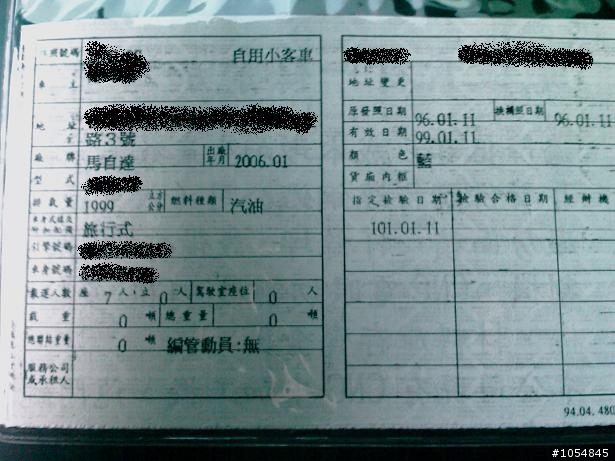 牌照號碼 自用小客車
車主
地址
路3號
廠牌 馬自達 出廠年月 2006.01
型式
排氣量 1999 立方公分 燃料種類 汽油
車身式樣及附加配備 旅行式
引擎號碼
車身號碼
載運人數 座 7 人;立 0 人 駕駛室座位 0 人
載重 0 噸 總重量 0 噸
總聯結重量 0 噸 編管動員:無
服務公司
或承租人
地址變更
原發照日期 96.01.11 換補照日期 96.01.11
有效日期 99.01.11
顏色 藍
貨廂內框
指定檢驗日期 檢驗合格日期 經辦機
101.01.11
94.04. 480
#1054845